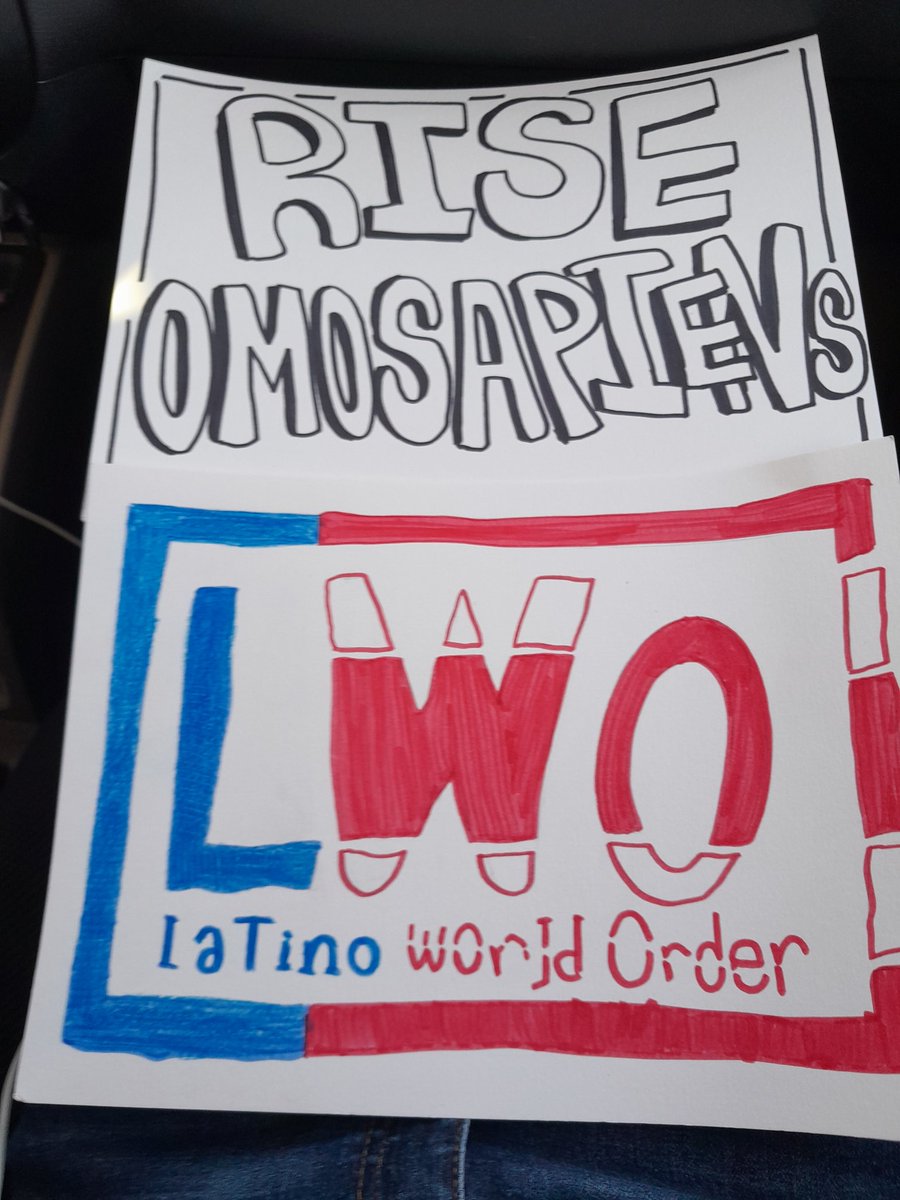 RISE
OMOSAPIENS
LWO
laTino worJd Order